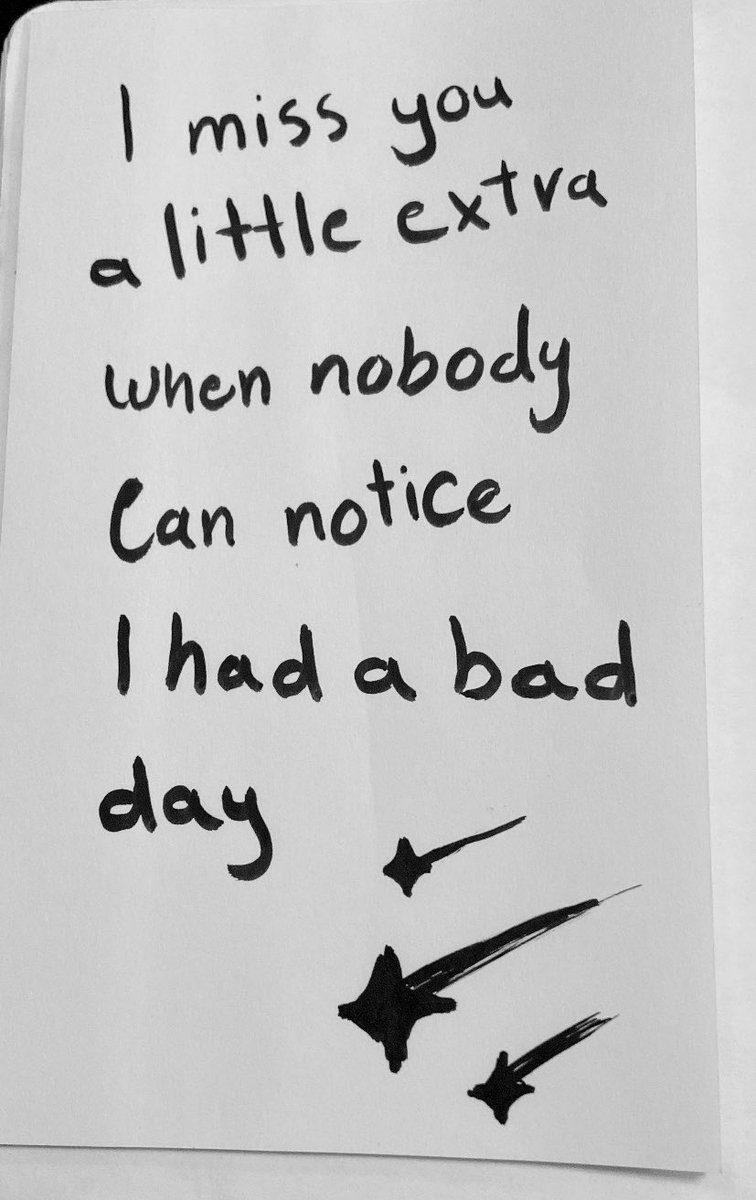 I miss you
a little extra
when nobody
Can notice
I had a bad
day